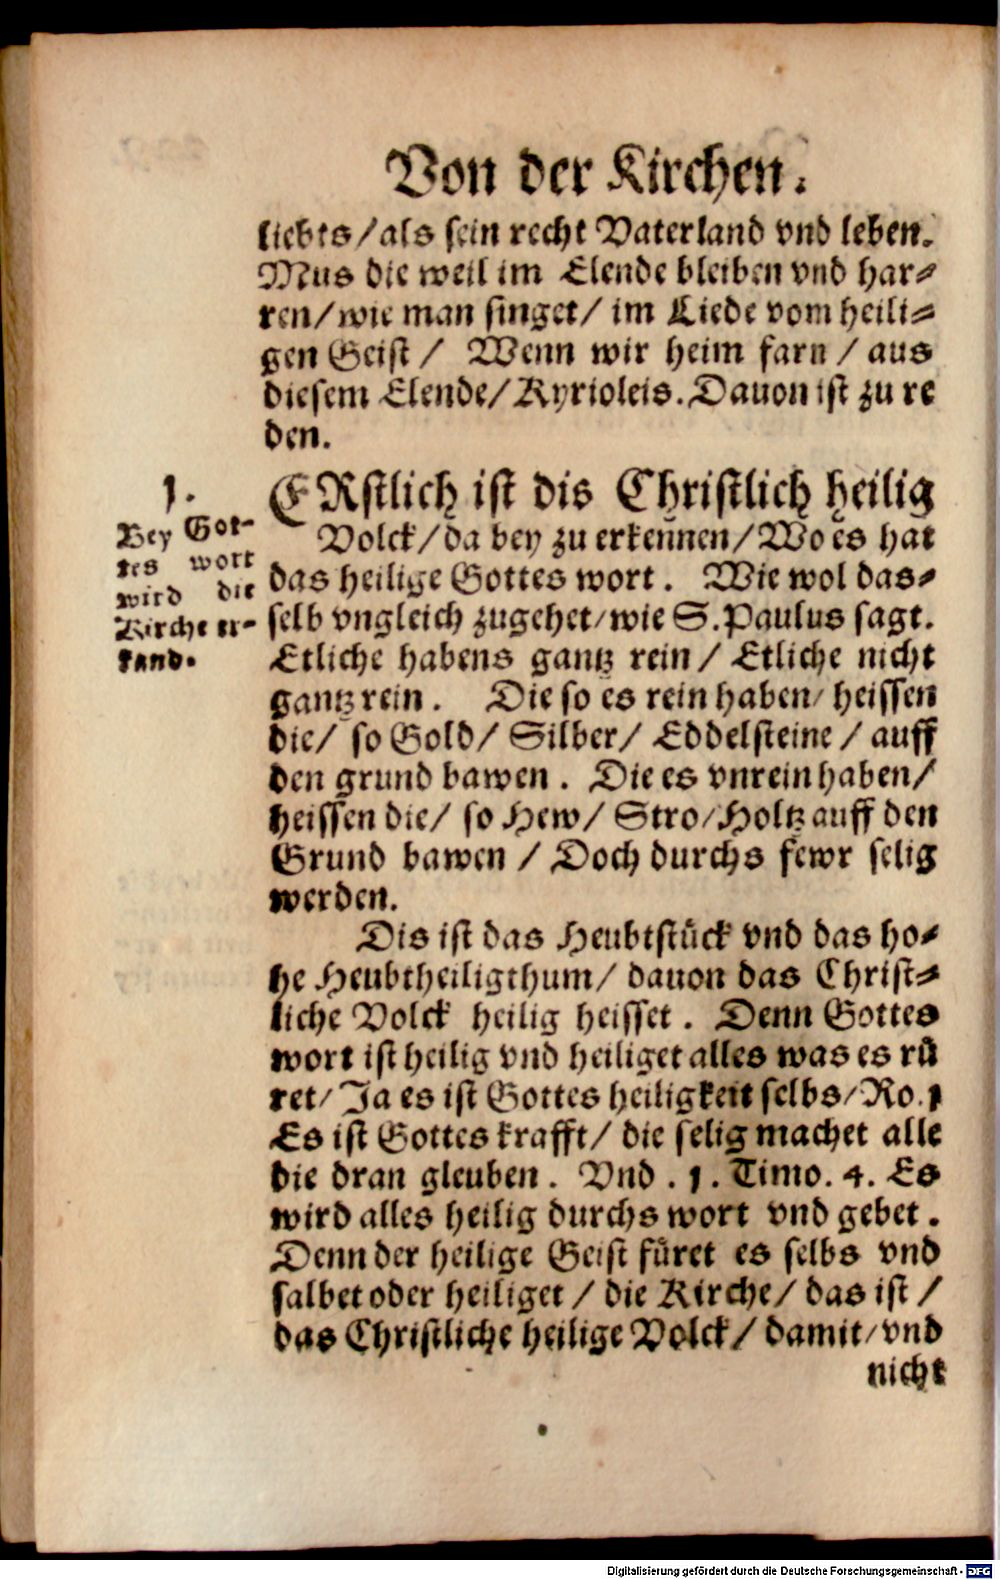 Von der Kirchen.
liebts/als sein recht Vaterland vnd leben.
Mus die weil im Elende bleiben vnd har⸗
ren/wie man singet/ im Liede vom heili⸗
gen Geist / Wenn wir heim farn / aus
diesem Elende/Kyrioleis. Dauon ist zu re
den.
1.
Bey Got⸗
tes wort
wird die
Kirche er⸗
kand.
ERstlich ist dis Christlich heilig
Volck/da bey zu erkennen/Wo es hat
das heilige Gottes wort. Wie wol das⸗
selb vngleich zugehet/wie S. Paulus sagt.
Etliche habens gantz rein/ Etliche nicht
gantz rein. Die so es rein haben/ heissen
die/ so Gold/ Silber/ Eddelsteine / auff
den grund bawen. Die es vnrein haben/
heissen die/ so Hew/ Stro/Holtz auff den
Grund bawen / Doch durchs fewr selig
werden.
Dis ist das Heubtstück vnd das ho⸗
he Heubtheiligthum/ dauon das Christ⸗
liche Volck heilig heisset. Denn Gottes
wort ist heilig vnd heiliget alles was es rü
ret/ Ja es ist Gottes heiligkeit selbs/Ro. 1
Es ist Gottes krafft/ die selig machet alle
die dran gleuben. Vnd . 1. Timo. 4. Es
wird alles heilig durchs wort vnd gebet.
Denn der heilige Geist füret es selbs vnd
salbet oder heiliget / die Kirche/ das ist /
das Christliche heilige Volck/ damit/vnd
nicht
Digitalisierung gefördert durch die Deutsche Forschungsgemeinschaft - DFG